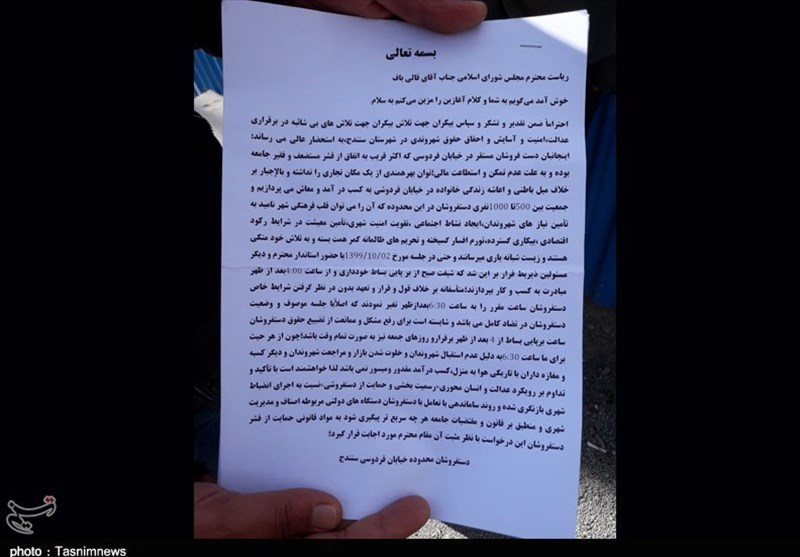 بسمه تعالی
ریاست محترم مجلس شورای اسلامی جناب آقای قالی باف
خوش آمد می‌گویم به شما و کلام آغازین را مزین می‌کنم به سلام.
احتراماً ضمن تقدیر و تشکر و سپاس بیکران جهت تلاش بیکران جهت تلاش های بی شائبه در برقراری
عدالت،امنیت و آسایش و احقاق حقوق شهروندی در شهرستان سنندج،به استحضار عالی می رساند؛
اینجانبان دست فروشان مستقر در خیابان فردوسی که اکثر قریب به اتفاق از قشر مستضعف و فقیر جامعه
بوده و به علت عدم تمکن و استطاعت مالی؛توان بهرهمندی از یک مکان تجاری را نداشته و بالاجبار بر
خلاف میل باطنی و اعاشه زندگی خانواده در خیابان فردوسی به کسب در آمد و معاش می پردازیم و
جمعیت بین 500تا 1000نفری دستفروشان در این محدوده که آن را می توان قلب فرهنگی شهر نامید به
تأمین نیاز های شهروندان،ایجاد نشاط اجتماعی ،تقویت امنیت شهری،تأمین معیشت در شرایط رکود
اقتصادی ،بیکاری گسترده،تورم افسار گسیخته و تحریم های ظالمانه کمر همت بسته و به تلاش خود متکی
هستند و زیست شبانه یاری میرسانند و حتی در جلسه مورخ 1399/10/02با حضور استاندار محترم و دیگر
مسئولین ذیربط قرار بر این شد که شیفت صبح از بر پایی بساط خودداری و از ساعت 4:00بعد از ظهر
مبادرت به کسب و کار بپردازند؛متأسفانه بر خلاف قول و قرار و تعهد بدون در نظر گرفتن شرایط خاص
دستفروشان ساعت مقرر را به ساعت 6:30بعدازظهر تغیر نمودند که اصلأبا جلسه موصوف و وضعیت
دستفروشان در تضاد کامل می باشد و شایسته است برای رفع مشکل و ممانعت از تضییع حقوق دستفروشان
ساعت برپایی بساط از 4 بعد از ظهر برقرارو روزهای جمعه نیز به صورت تمام وقت باشد؛چون از هر حیث
برای ما ساعت 6:30به دلیل عدم استقبال شهروندان و خلوت شدن بازار و مراجعت شهروندان و دیگر کسبه
و مغازه داران با تاریکی هوا به منزل،کسب در آمد مقدور ومیسور نمی باشد لذا خواهشمند است با تأکید و
تداوم بر رویکرد عدالت و انسان محوری،رسمیت بخشی و حمایت از دستفروشی،نسبت به اجرای انضباط
شهری بازنگری شده و روند ساماندهی با تعامل با دستفروشان دستگاه های دولتی مربوطه اصناف و مدیریت
شهری و منطبق بر قانون و مقتضیات جامعه هر چه سریع تر پیگیری شود به مواد قانونی حمایت از قشر
دستفروشان این درخواست با نظر مثبت آن مقام محترم مورد اجابت قرار گیرد؛
دستفروشان محدوده خیابان فردوسی سنندج
تسنیم
photo : Tasnimnews